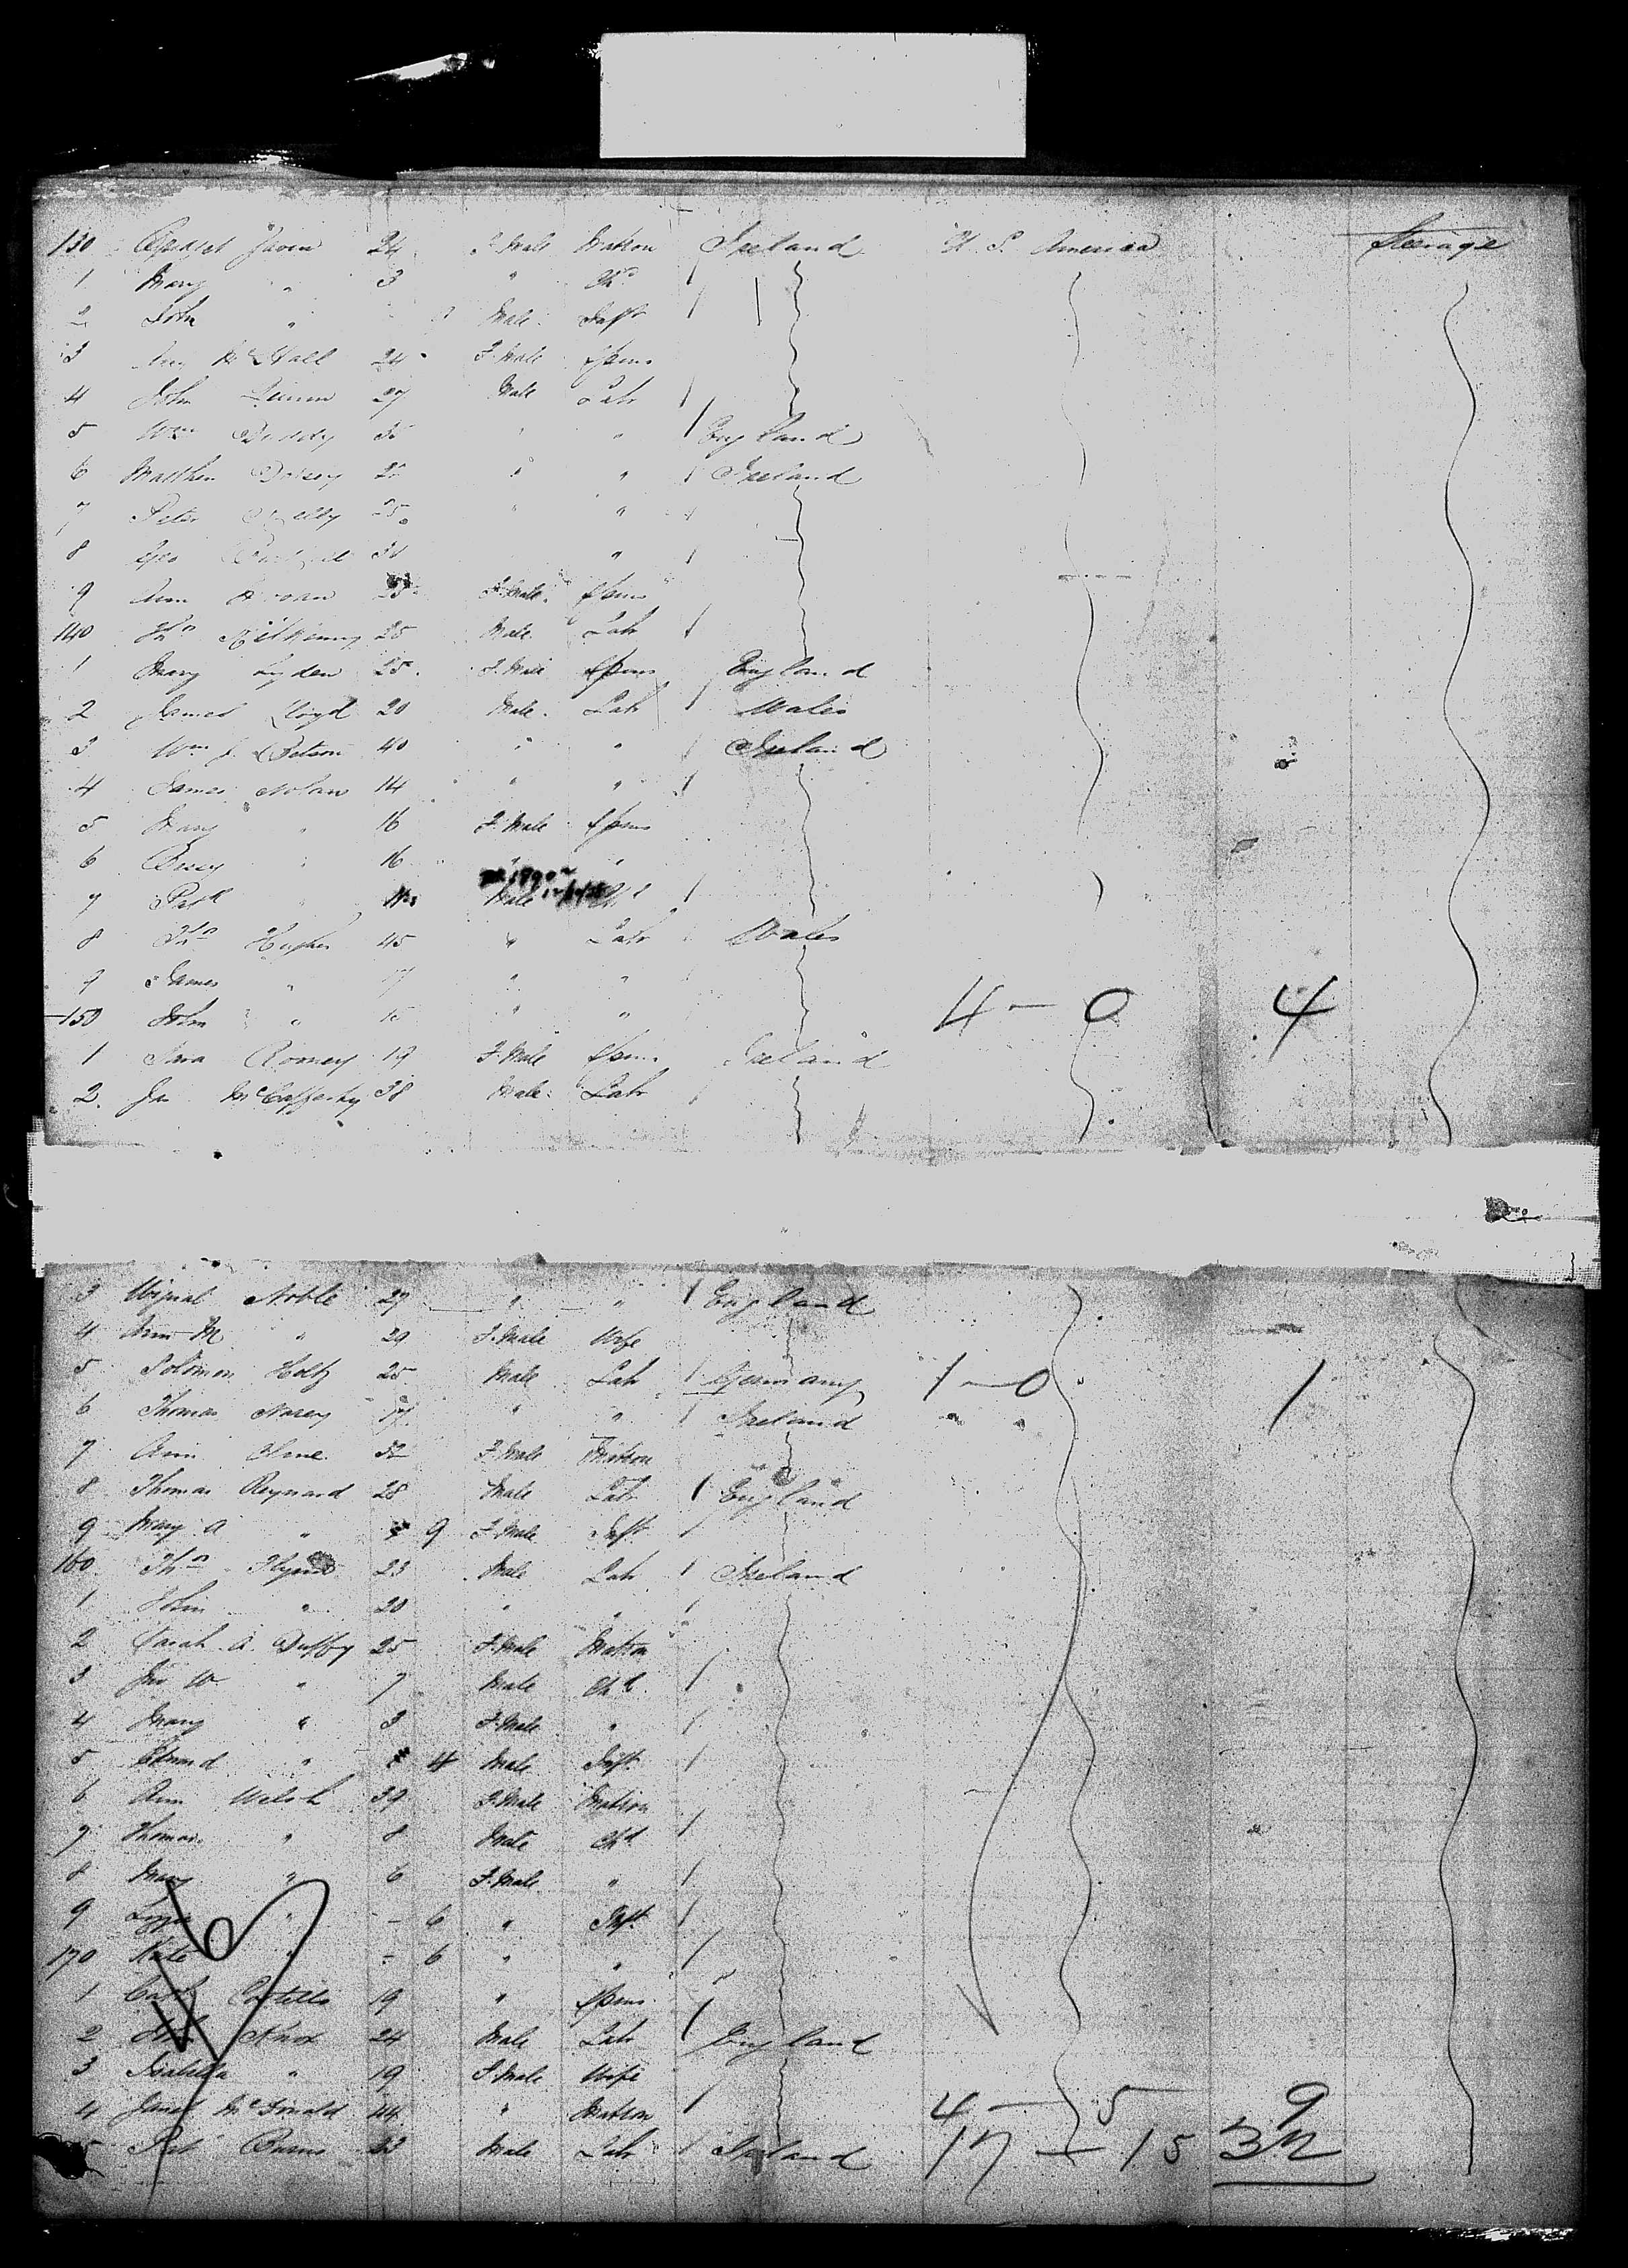 130 Javin 24 F. Male Matron Ireland U. S. America Steerage
1 Mary " 3 " Chd
2 John " Male Inft
3 Ann McHall 24 F. Male Spins
4 John Quinn 27 Male Labr
5 Wm Duddy " " England
6 Matthew Dorsey " " Ireland
7 Peter Kelly 25 " "
8 Geo "
9 Ann F. Male Spins
140 Ths Kilkenny 25 Male Labr
1 Mary Lyden 25 F. Male Spins England
2 James Lloyd 20 Male Labr Wales
3 Wm J. 40 " " Ireland
4 James Nolan 14 " "
5 Mary " 16 F. Male Spins
6 Bessy " 16 " "
7 Patk " Male Chd
8 Ths Hughes 45 " Labr Wales
9 James " 17 " "
150 John " " " 4 - 0 4
1 Sara Romney 19 F. Male Spins Ireland
2 Jas McCafferty 38 Male Labr
3 Noble 27 " " England
4 Ann M " 29 F. Male Wife
5 Solomon Holtz 25 Male Labr Germany 1 - 0 1
6 Thomas Narey 17 " " Ireland
7 Ann 32 F. Male Matron
8 Thomas Reynard 28 Male Labr England
9 Mary A " 9 F. Male Inft
160 Ths Flynn 23 Male Labr Ireland
1 John " 20 " "
2 Sarah A. Duffy 25 F. Male Matron
3 Jno W " 7 Male Chd
4 Mary " 3 F. Male "
5 Edmund " 4 Male Inft
6 Ann Welsh 39 F. Male Matron
7 Thomas " 8 Male Chd
8 Mary " 6 F. Male "
9 Lizzie " - 6 " Inft
170 Kate " - 6 " "
1 Cath Costello 19 " Spins
2 Knox 24 Male Labr England
3 Isabella " 19 F. Male Wife
4 Janet McDonald 44 " Matron 4 - 5 9
5 Pat Burns 23 Male Labr Ireland 17 - 15 32